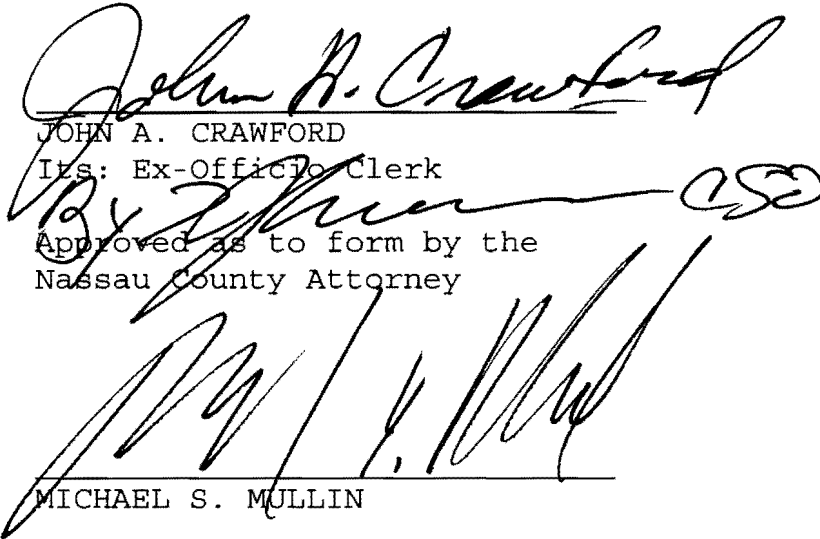 John A. Crawford
JOHN A. CRAWFORD
Its: Ex-Officio Clerk
By CSO
Approved as to form by the
Nassau County Attorney
MICHAEL S. MULLIN